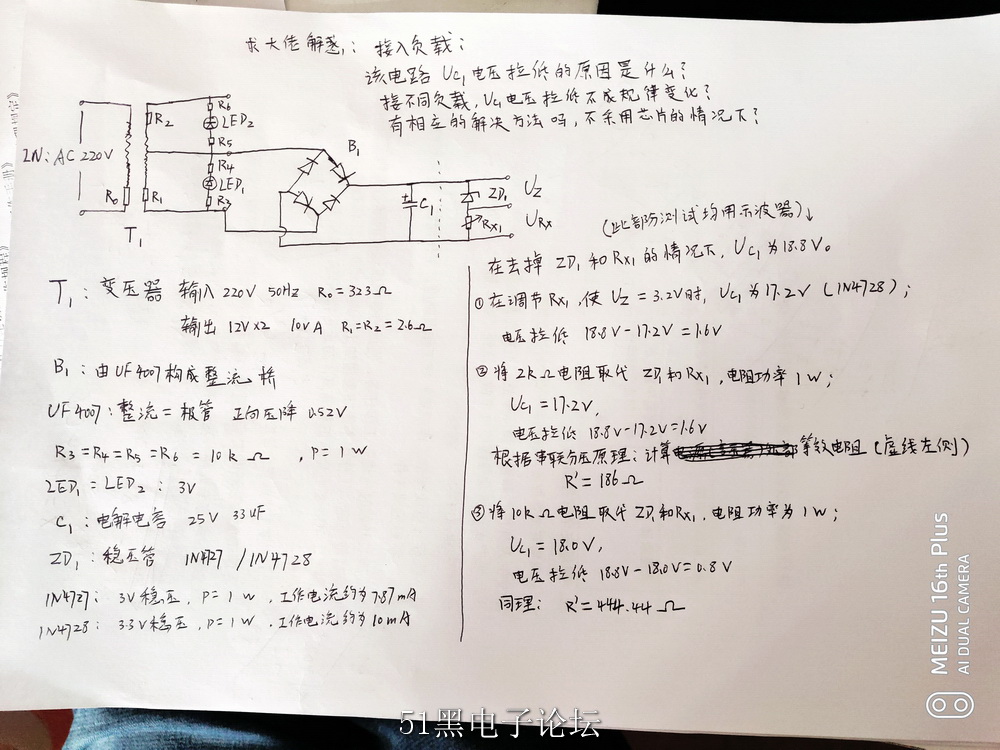 求大佬解惑: 接入负载:
该电路 UC1 电压拉低的原因是什么?
接不同负载, UC1 电压拉低不成规律变化?
有相应的解决方法吗, 不采用芯片的情况下?
IN: AC 220V
R0
T1
R2
R1
R6
LED2
R5
R4
LED1
R3
B1
C1
ZD1
RX1
UZ
URX
T1: 变压器 输入 220V 50HZ R0=323Ω
输出 12V×2 10VA R1=R2=2.6Ω
B1: 由UF4007构成整流桥
UF4007: 整流二极管 正向压降 0.52V
R3=R4=R5=R6=10kΩ, P=1W
LED1=LED2: 3V
C1: 电解电容 25V 33uF
ZD1: 稳压管 1N4727/1N4728
1N4727: 3V稳压, P=1W, 工作电流约为7.87mA
1N4728: 3.3V稳压, P=1W, 工作电流约为10mA
(此部防测试均用示波器)↓
在去掉 ZD1 和 RX1 的情况下, UC1 为18.8V。
①在调节RX1, 使 UZ=3.2V时, UC1 为17.2V (1N4728);
电压拉低 18.8V-17.2V=1.6V
②将 2kΩ电阻取代 ZD1和RX1, 电阻功率1W;
UC1=17.2V,
电压拉低 18.8V-17.2V=1.6V
根据串联分压原理: 计算等效电阻(虚线左侧)
R'=186Ω
③将10kΩ电阻取代ZD1和RX1, 电阻功率为1W;
UC1=18.0V,
电压拉低 18.8V-18.0V=0.8V
同理: R'=444.44Ω
MEIZU 16th Plus
AI DUAL CAMERA
51黑电子论坛